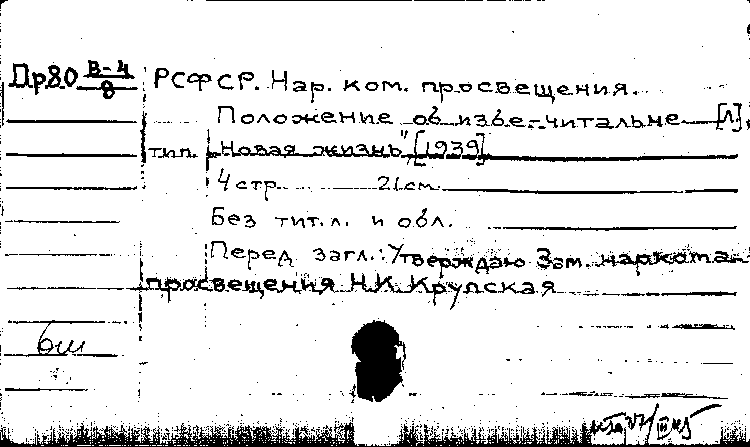 Пр80 В-4/8
РСФСР. Нар. ком. просвещения.
Положение об избе-читальне [Л],
тип. "Новая жизнь", [1939]
4 стр. 21 см.
Без тит. л. и обл.
Перед загл.: Утверждаю Зам. наркома
просвещения Н.К. Крупская
6ш